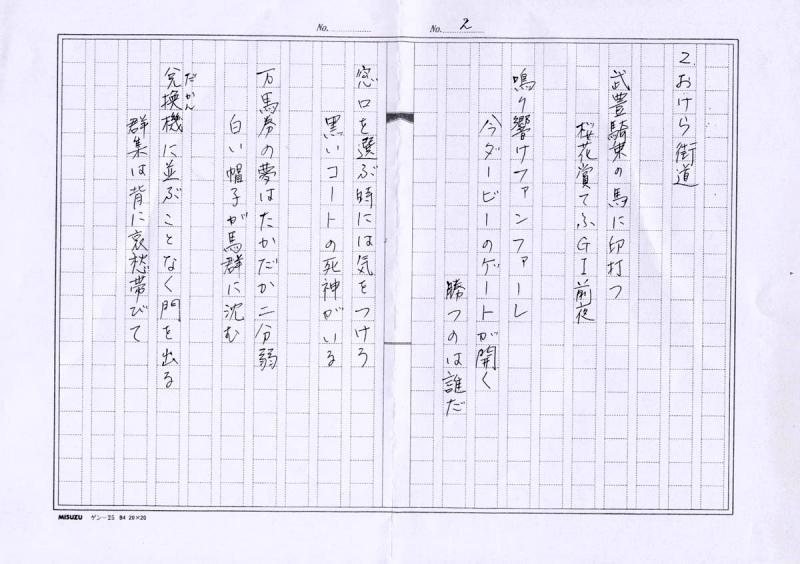 No.
No. 2
2 おけら街道
武豊騎乗の馬に印打つ
桜花賞てふGⅠ前夜
鳴り響けファンファーレ
今ダービーのゲートが開く
勝つのは誰だ
窓口を選ぶ時には気をつけろ
黒いコートの死神がいる
万馬券の夢はたかだか二分弱
白い帽子が馬群に沈む
だかん
兌換機に並ぶことなく門を出る
群集は背に哀愁帯びて
MISUZU ゲンー25 B4 20×20